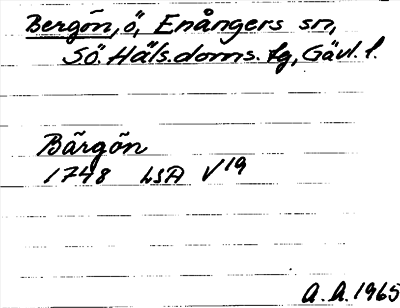 Bergön, ö, Enångers sn,
Sö. Häls. doms. tg, Gävl. l.
Bärgön
1748 LSA V19
A. A. 1965